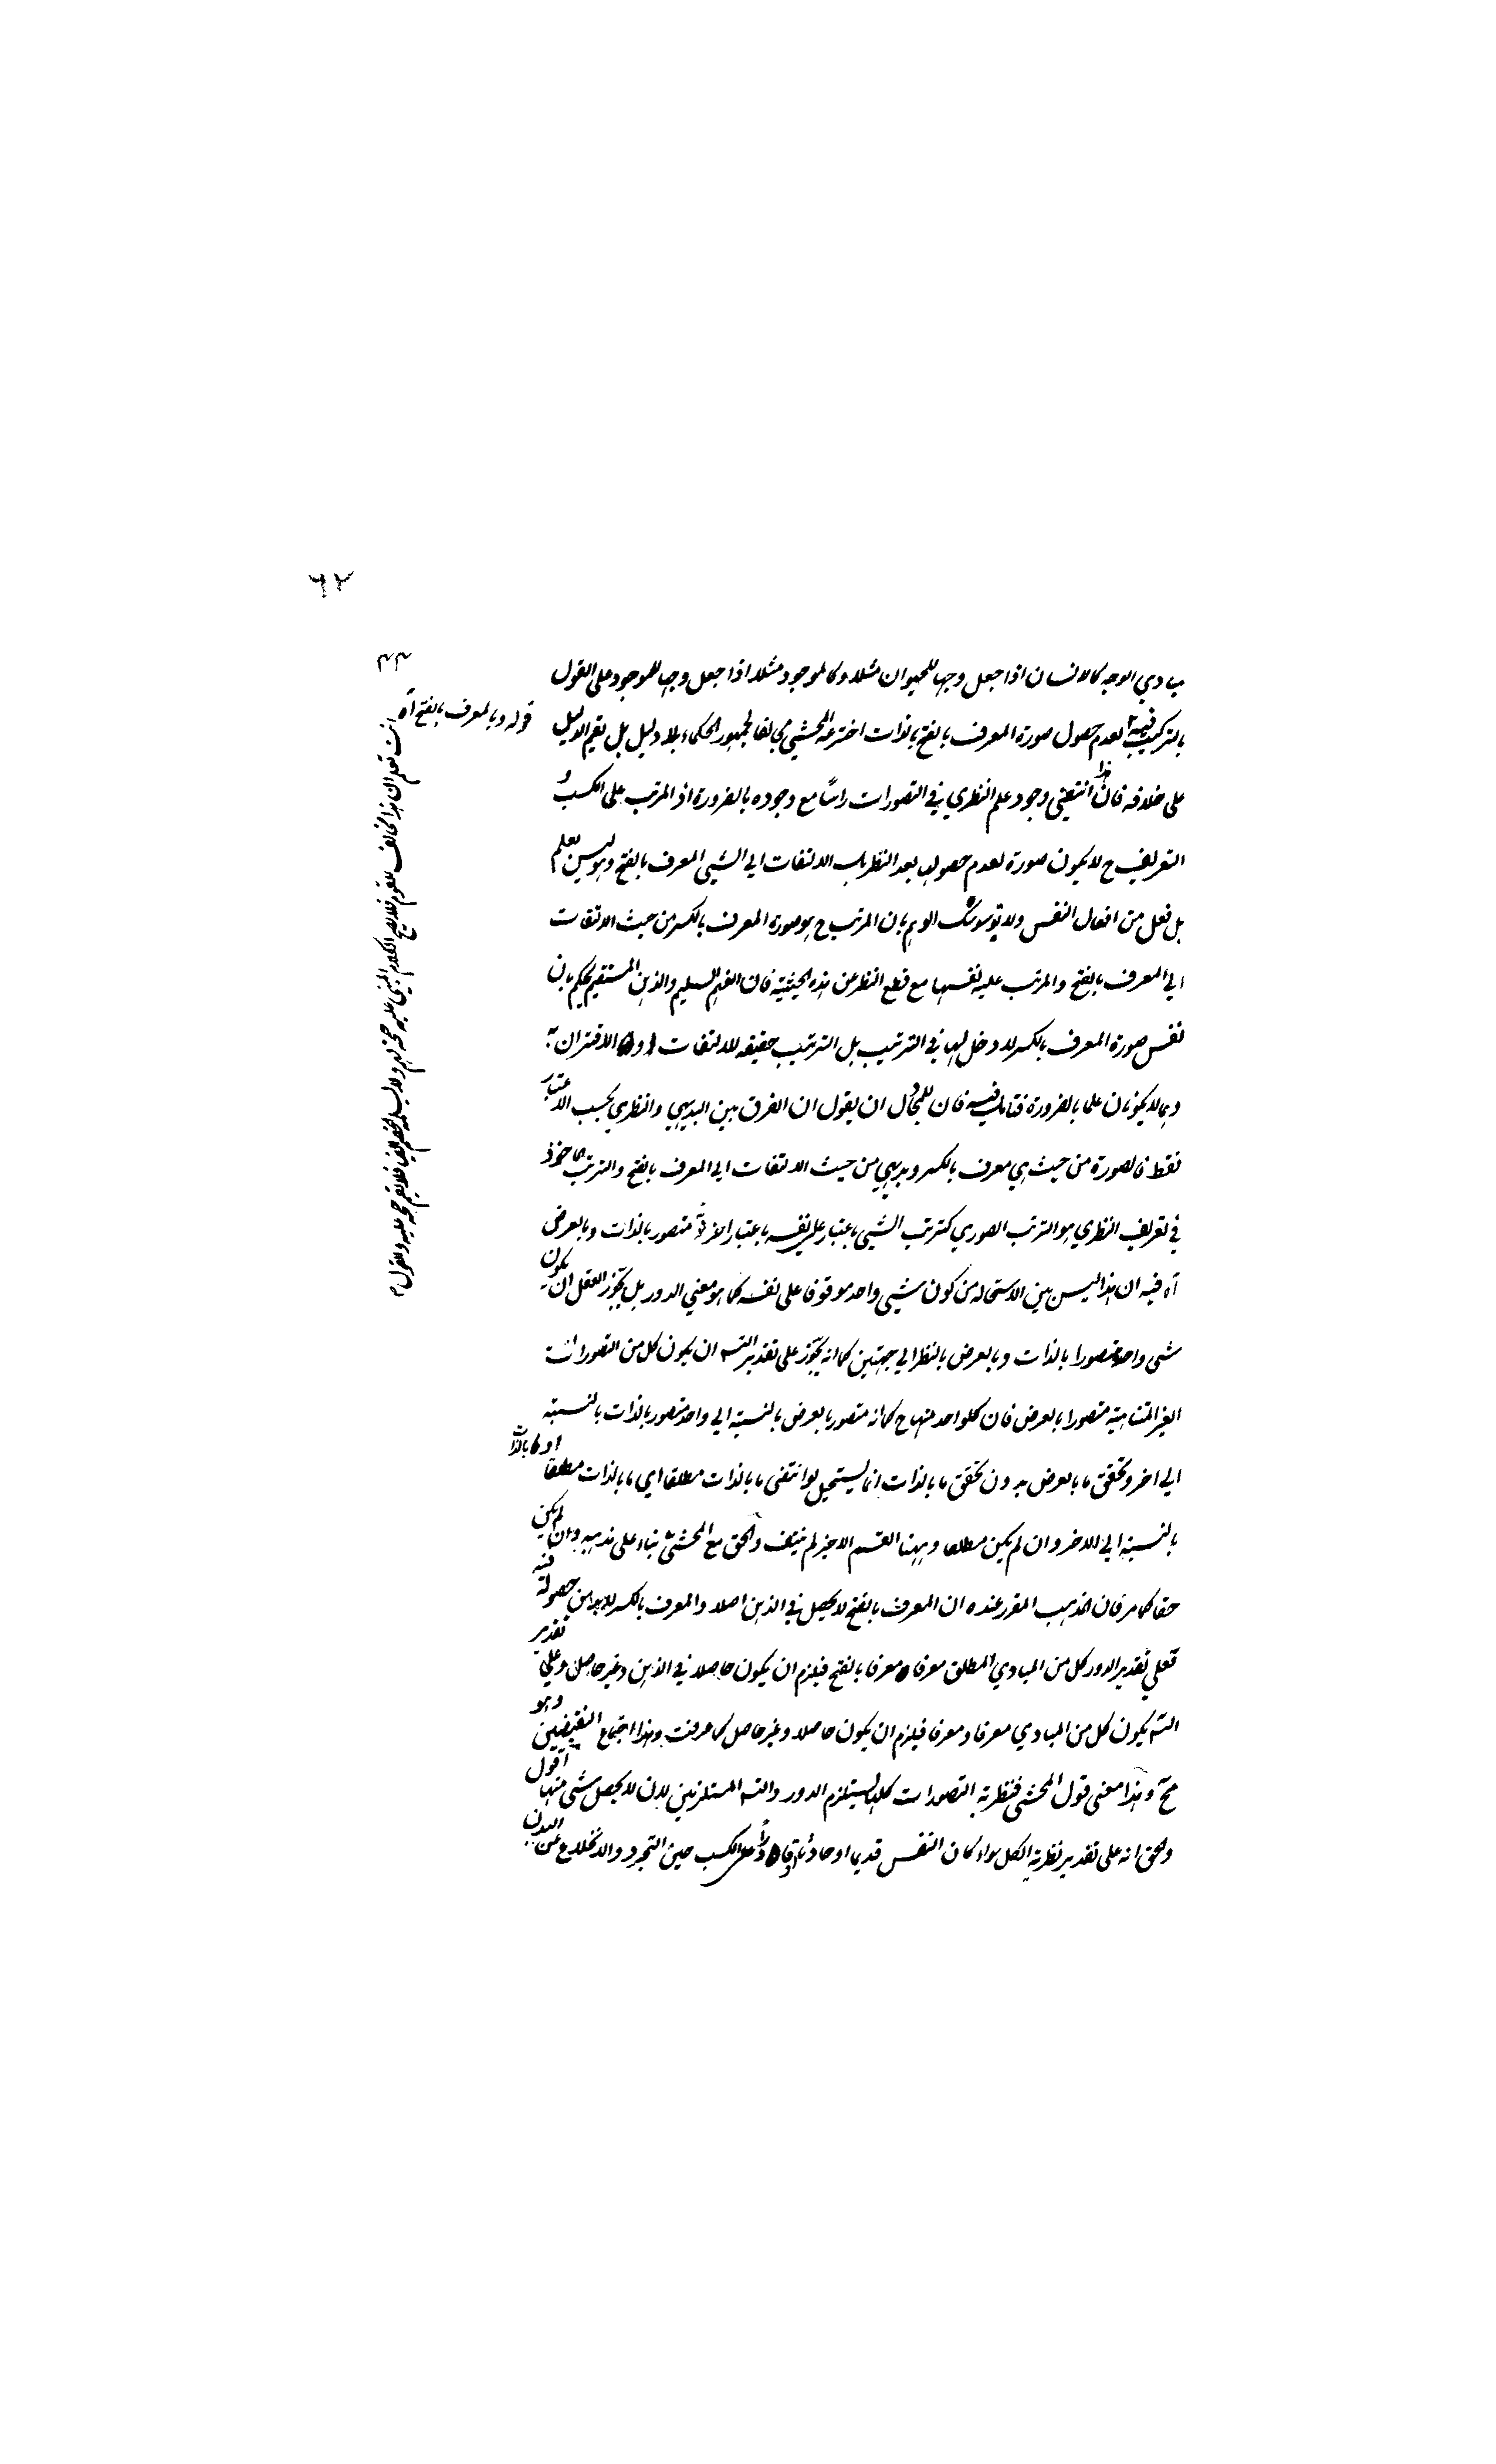 ٦٢
٤٤
مبادي الوجه كالانسان اذا جعل وجها للحيوان مثلا وكالموجود مثلا اذا جعل وجها للموجود على القول
بالتركيب فيه لعدم حصول صورة المعرف بالفتح بالذات اخترعه المحشي مخالفا لجمهور الحكماء بلا دليل بل يقيم الدليل
على خلافه فان هذا انتفى وجود علم النظري في التصورات راسا مع وجوده بالضرورة اذ المرتب على الكسب و
التعريف ح لا يكون صورة لعدم حصولها بعد النظر بل الالتفات الى الشيء المعرف بالفتح وهو ليس بعلم
بل فعل من افعال النفس ولا يوسوسك الوهم بان المرتب ح هو صورة المعرف بالكسر من حيث الالتفات
الى المعرف بالفتح والمرتب عليه نفسها مع قطع النظر عن هذه الحيثية فان الفهم السليم والذهن المستقيم يحكم بان
نفس صورة المعرف بالكسر لا دخل لها في الترتيب بل الترتيب حقيقة للالتفات او الاقتران
وهما لا يكونان علما بالضرورة فتامل فيه فان للمجادل ان يقول ان الفرق بين البديهي والنظري بحسب الاعتبار
فقط فالصورة من حيث هي معرف بالكسر وبديهي من حيث الالتفات الى المعرف بالفتح والترتب الماخوذ
في تعريف النظري هو الترتب الصوري كترتب الشيء باعتبار على نفسه باعتبار اخر متصور بالذات وبالعرض
آه فيه ان هذا ليس بين الاستحالة من كون شيء واحد موقوفا على نفسه كما هو معنى الدور بل يجوز العقل ان يكون
شيء واحد متصورا بالذات وبالعرض بالنظر الى جهتين كما انه يجوز على تقدير التسه ان يكون كل من التصورات
الغير المتناهية متصورا بالعرض فان كلواحد منها ح كما انه متصور بالعرض بالنسبة الى واحد متصور بالذات بالنسبة
الى اخر وتحقق ما بالعرض بدون تحقق ما بالذات انما يستحيل لو انتفى ما بالذات مطلقا اي ما بالذات مطلقا او ما بالذات
بالنسبة الى الاخر وان لم يكن مطلقا وههنا القسم الاخير لم ينتف والحق مع المحشي بناء على مذهبه وان لم يكن
حقا كما مر فان المذهب المقرر عنده ان المعرف بالفتح لا يحصل في الذهن اصلا والمعرف بالكسر لا بد من حصوله فيه
فعلى تقدير الدور كل من المبادي المطلق معرفا ومعرفا بالفتح فيلزم ان يكون حاصلا في الذهن وغير حاصل وعلى تقدير
التسه يكون كل من المبادي معرفا ومعرفا فيلزم ان يكون حاصلا وغير حاصل كما عرفت وهذا اجتماع النقيضين وهو
مح وهذا معنى قول المحشي فنظرية التصورات كلها يستلزم الدور والتسه المستلزمين لان لا يحصل شيء منها اقول
والحق انه على تقدير نظرية الكل سواء كان النفس قديما او حادثا على الكسب حين التجرد والانخلاع عن البدن
قوله وبالمعرف بالفتح آه
انت تعلم ان هذا مخالف للقوم فلا يصح الكلام المبني عليه